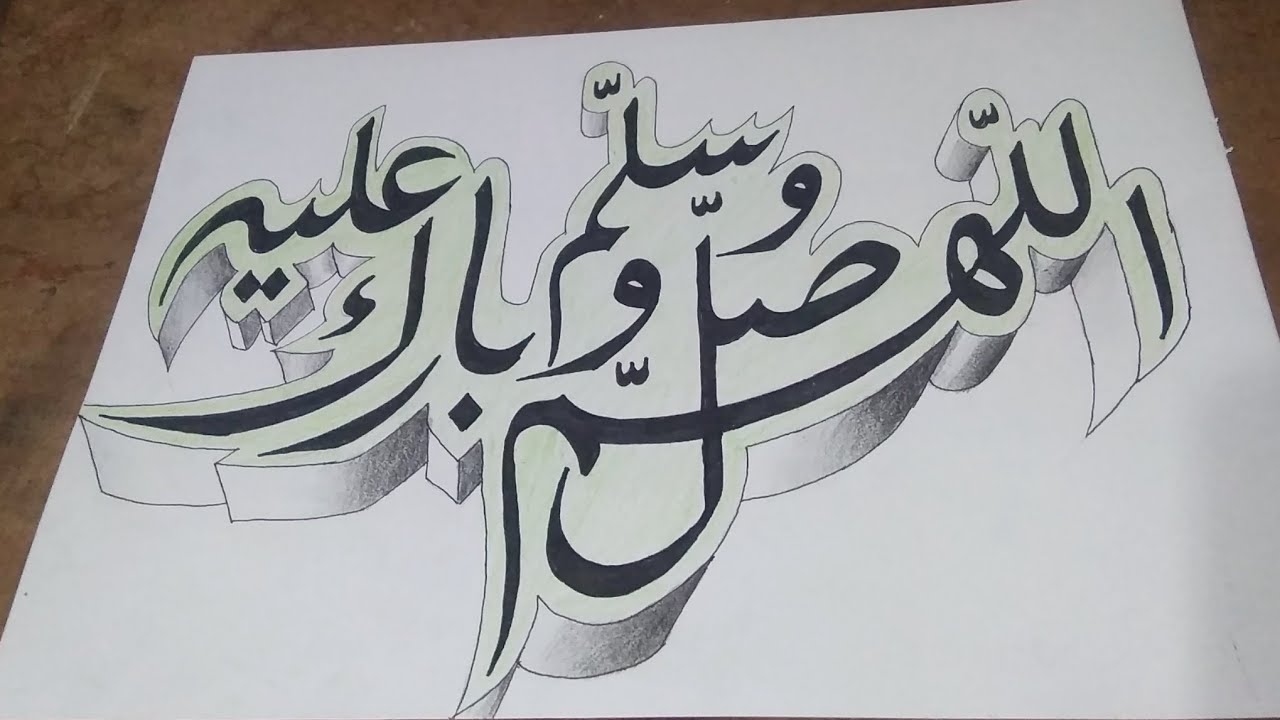 اللّهمّ صلّ وسلّم وبارك عليه